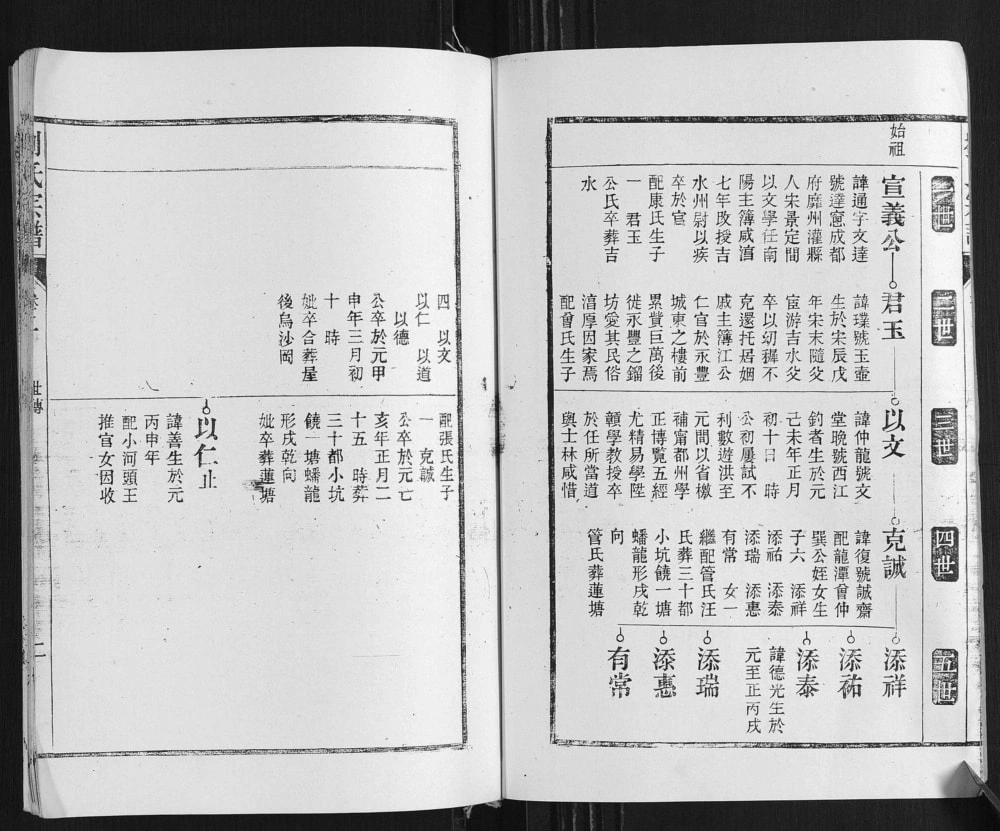 一世
二世
三世
四世
五世
始祖
宣義公
諱通字文達
號達窻成都
府靡州灌縣
人宋景定間
以文學任南
陽主簿咸淯
七年改授吉
水州尉以疾
卒於官
配康氏生子
一 君玉
公氏卒葬吉
水
君玉
諱璞號玉壺
生於宋辰戊
年宋末隨父
宦游吉水父
卒以幼穉不
克還托居姻
戚主簿江公
仁官於永豐
城東之樓前
累貲巨萬後
徙永豐之鎦
坊愛其民俗
淯厚因家焉
配曾氏生子
四 以文
以仁 以道
以德
公卒於元甲
申年三月初
十 時
妣卒合葬屋
後烏沙岡
以文
諱仲龍號文
堂晚號西江
釣者生於元
己未年正月
初十日 時
公初屢試不
利數遊洪至
元間以省檄
補甯都州學
正博覧五經
尤精易學陞
贛學教授卒
於任所當道
與士林咸惜
配張氏生子
一 克誠
公卒於元亡
亥年正月二
十五 時葬
三十都小坑
饒一塘蟠龍
形戌乾向
妣卒葬蓮塘
以仁止
諱善生於元
丙申年
配小河頭王
推官女因收
克誠
諱復號誠齋
配龍潭曾仲
巽公姪女生
子六 添祥
添祐 添泰
添瑞 添惠
有常 女一
繼配管氏汪
氏葬三十都
小坑饒一塘
蟠龍形戌乾
向
管氏葬蓮塘
添祥
添祐
添泰
諱德光生於
元至正丙戌
添瑞
添惠
有常
氏宗譜
世傳